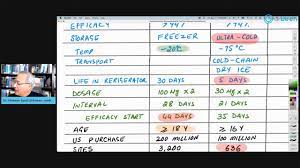 EFFICACY >94% >94%
STORAGE FREEZER ULTRA-COLD
TEMP -20°C -75°C
TRANSPORT COLD-CHAIN
DRY ICE
LIFE IN REFRIGERATOR 30 DAYS 5 DAYS
DOSAGE 100 Mg x 2 30 Mg x 2
INTERVAL 28 DAYS 21 DAYS
EFFICACY START 44 DAYS 35 DAYS
AGE ≥ 18 Y ≥ 16 Y
US PURCHASE 200 MILLION 100 MILLION
SITES 3,200 636